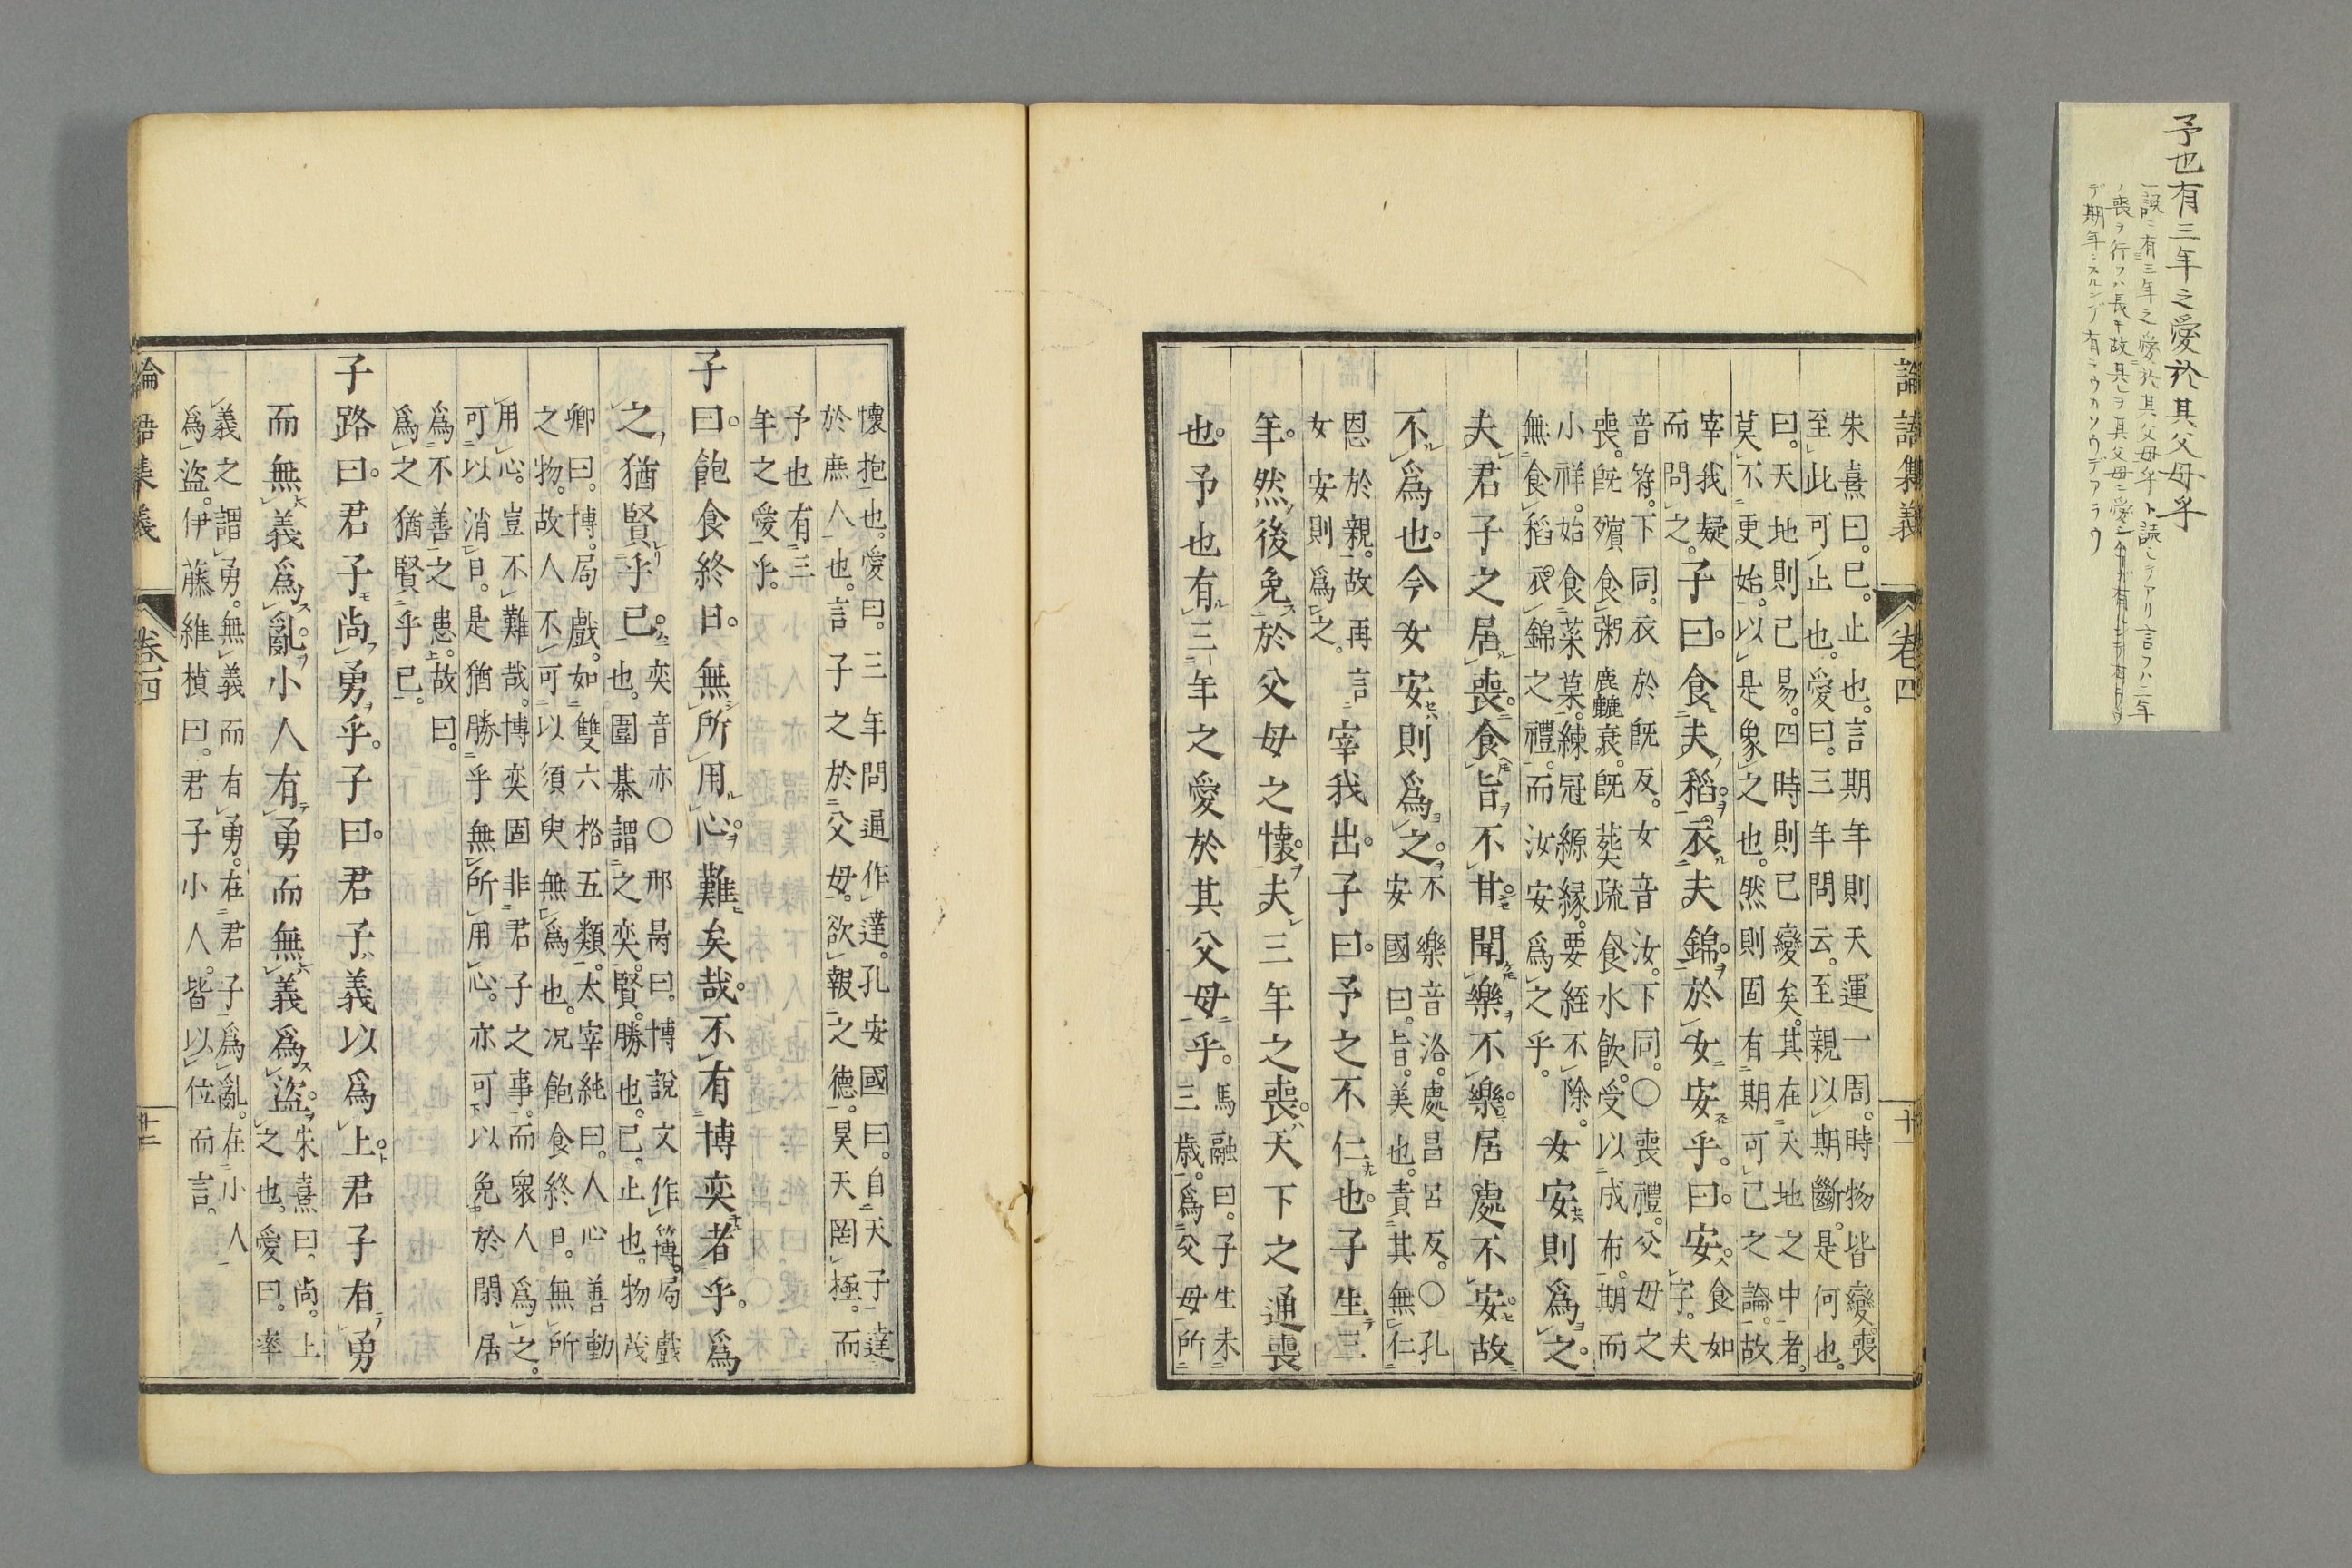 予也有三年之愛於其父母乎
一説ニ有三年之愛於其父母乎ト読ミテアリ言フハ三年
ノ喪ヲ行フハ長キ故其レヲ其父母ニ愛
デ期年ニスルンデ有ラウカソウデアラウ
論語集義 卷四 十一
朱熹曰。已。止也。言期年則天運一周。時物皆變。喪
至此可止也。愛曰。三年問云。至親以期斷。是何也。
曰。天地則已易。四時則已變矣。其在天地之中者。
莫不更始。以是象之也。然則固有期可已之論。故
宰我疑
而問之。
子曰。食夫稻。衣夫錦。於女安乎。曰安。
食如
字。夫
音符。下同。衣於既反。女音汝。下同。○喪禮。父母之
喪。既殯食粥麤衰。既葬疏食水飲。受以成布。期而
小祥。始食菜菓。練冠縓緣。要絰不除。
無食稻衣錦之禮。而汝安爲之乎。
女安則爲之。
夫君子之居喪。食旨不甘。聞樂不樂。居處不安。故
不爲也。今女安則爲之。
不樂音洛。處昌呂反。○孔
安國曰。旨。美也。責其無仁
恩於親。故再言
女安則爲之。
宰我出。子曰。予之不仁也。子生三
年。然後免於父母之懷。夫三年之喪。天下之通喪
也。予也有三年之愛於其父母乎。
馬融曰。子生未
三歲。爲父母所
懷抱也。愛曰。三年問通作達。孔安國曰。自天子達
於庶人也。言子之於父母。欲報之德。昊天罔極。而
予也有三
年之愛乎。
子曰。飽食終日。無所用心。難矣哉。不有博奕者乎。爲
之猶賢乎已。
奕音亦○邢昺曰。博說文作簙。局戲
也。圍棊謂之奕。賢。勝也。已。止也。物茂
卿曰。博。局戲。如雙六格五類。太宰純曰。人心善動
之物。故人不可以須臾無爲也。況飽食終日。無所
用心。豈不難哉。博奕固非君子之事。而衆人爲之。
可以消日。是猶勝乎無所用心。亦可以免於閒居
爲不善之患。故曰。
爲之猶賢乎已。
子路曰。君子尚勇乎。子曰。君子義以爲上。君子有勇
而無義爲亂。小人有勇而無義爲盜。
朱熹曰。尚。上
之也。愛曰。率
義之謂勇。無義而有勇。在君子爲亂。在小人
爲盜。伊藤維楨曰。君子小人。皆以位而言。
論語集義 卷四 十二